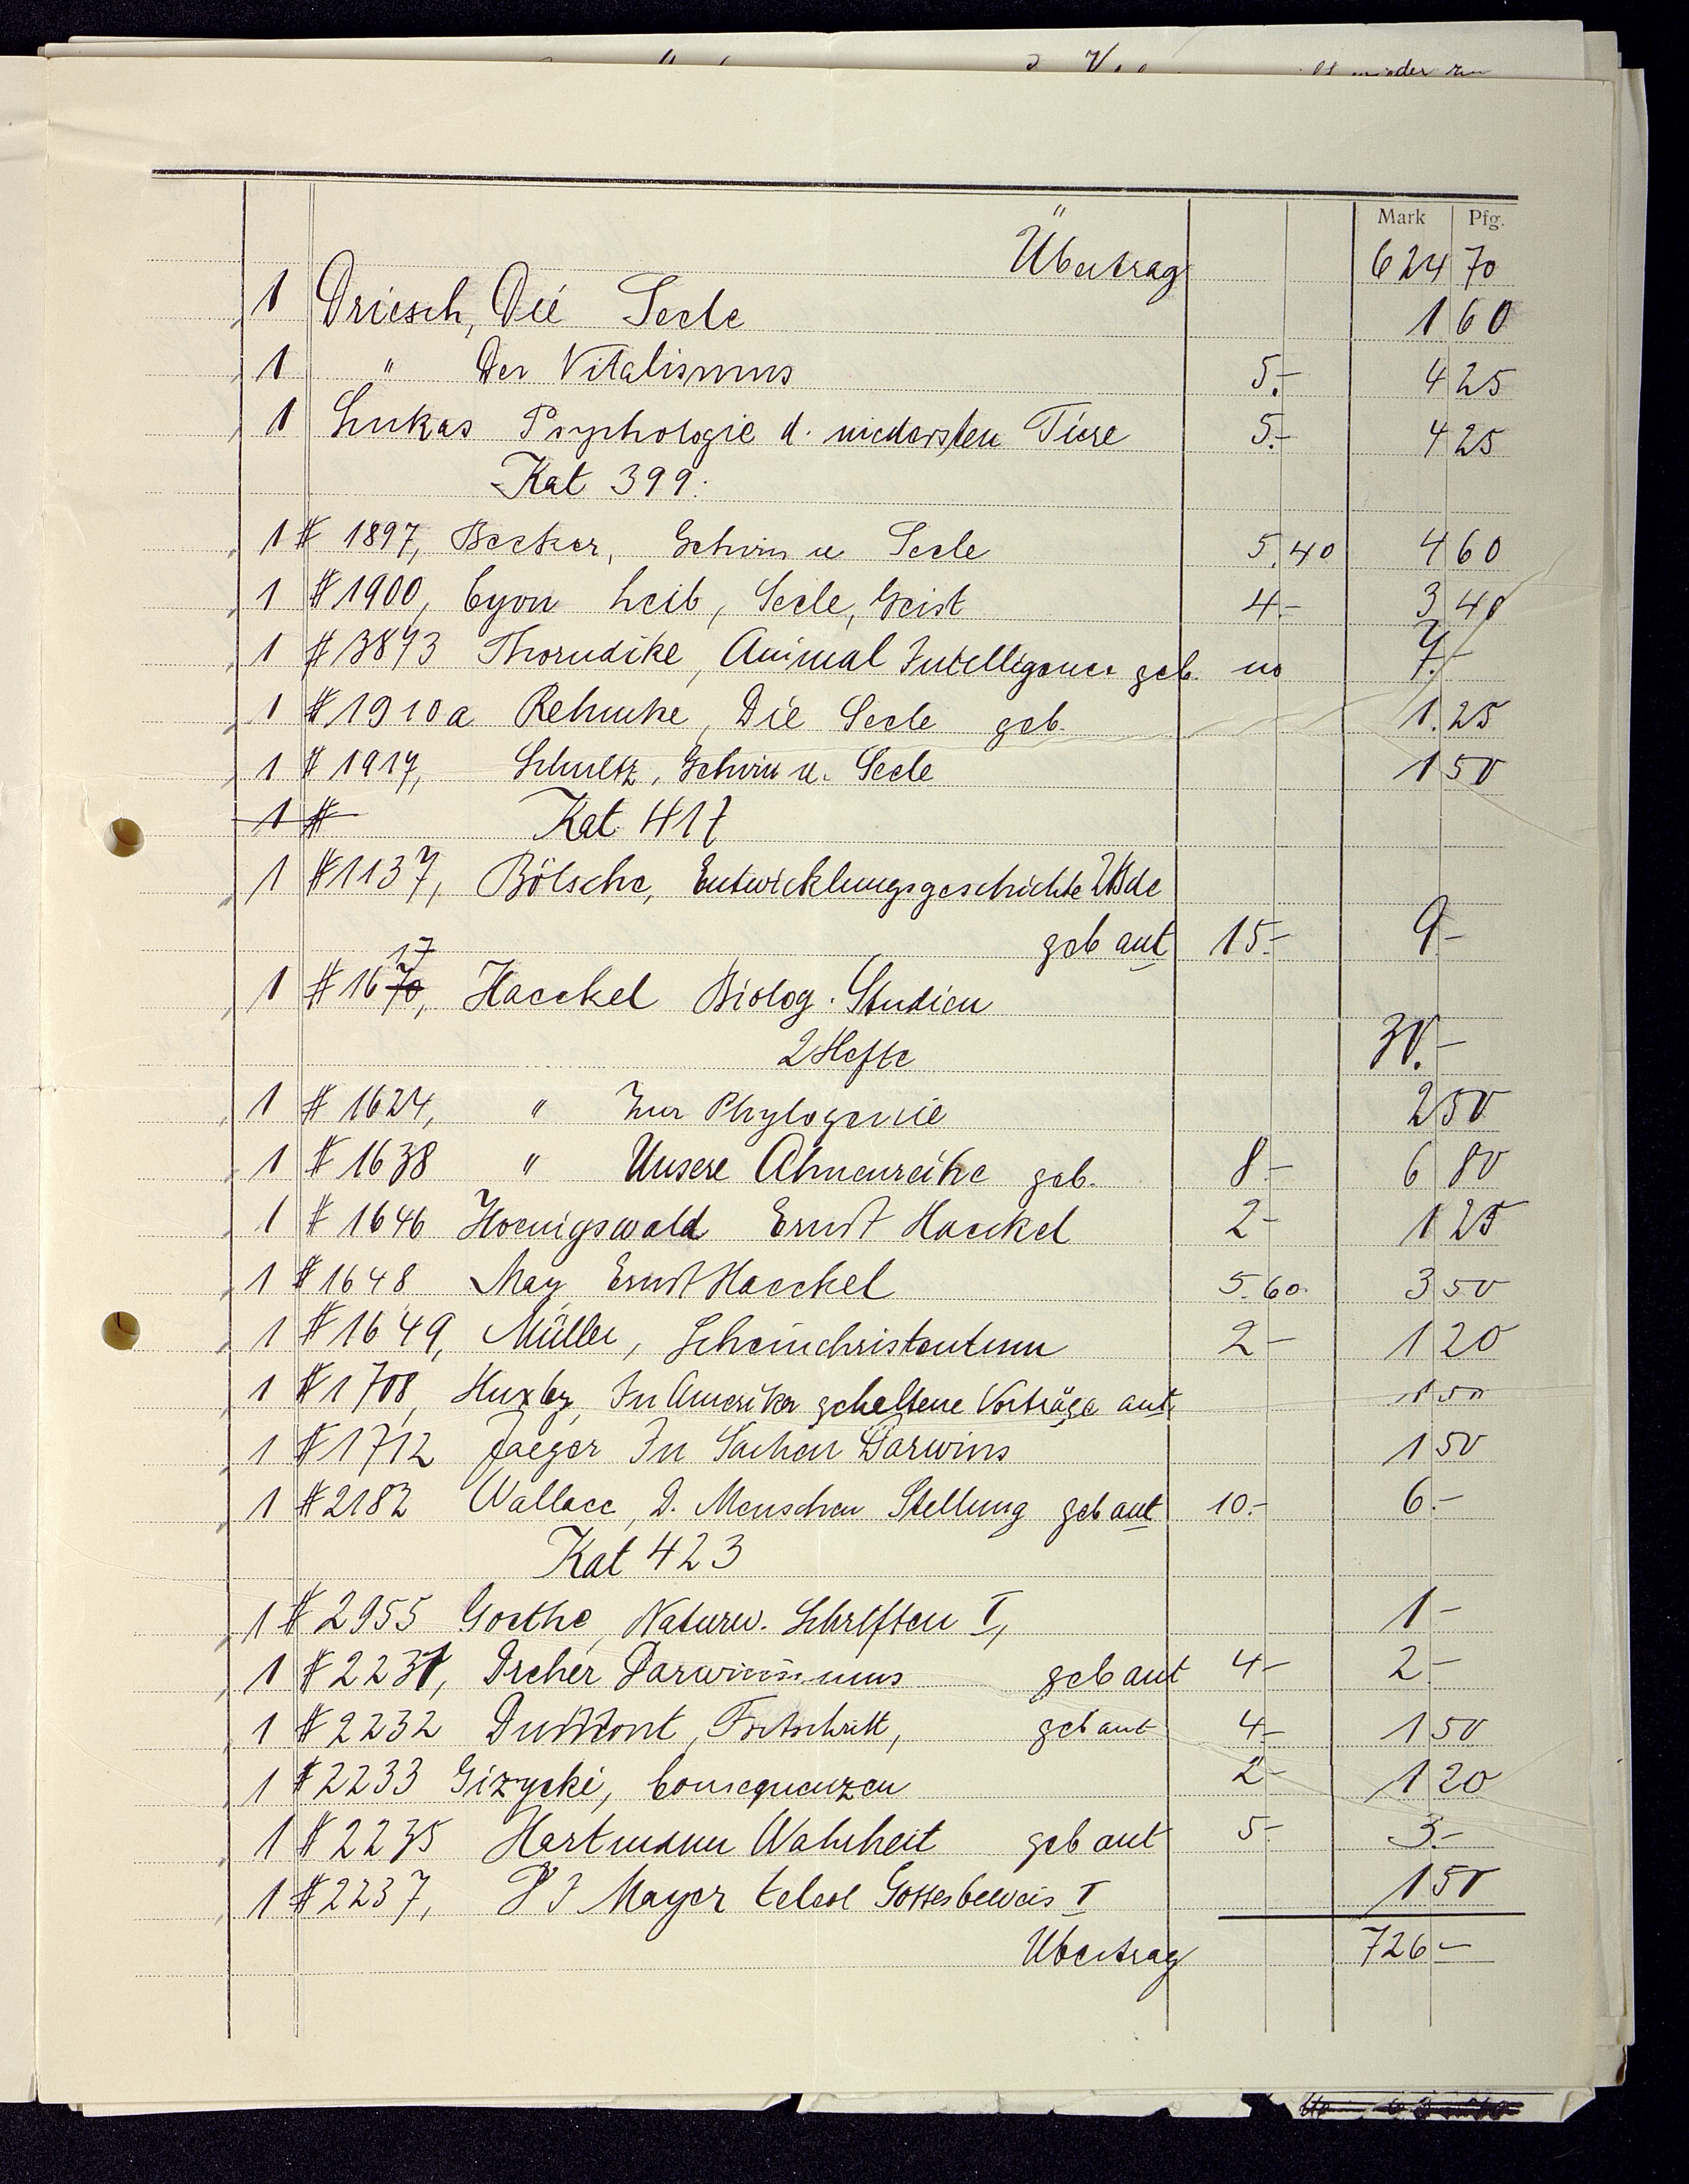 wieder
Mark Pfg.
Übertrag 624 70
1 Driesch, Die Seele 1 60
1 " Der Vitalismus 5.- 4 25
1 Lukas Psychologie d. niedersten Tiere 5.- 4 25
Kat 399.
1 # 1897, Becker, Gehirn u Seele 5.40 4 60
1 # 1900, Cyon Leib, Seele, Geist 4- 3 40
1 # 3873 Thorndike, Animal Intelligence geb. no 7.-
1 # 1910a Rehmke, Die Seele geb. 1.25
1 # 1917, Schultz, Gehirn u. Seele 1 50
1 # Kat. 417
1 # 1137, Bölsche, Entwicklungsgeschichte 2 Bde
geb ant 15.- 9.-
17
1 # 1670, Haeckel Biolog. Studien
2 Hefte 30.-
1 # 1624, " Zur Phylogenie 2 50
1 # 1638 " Unsere Ahnenreihe geb. 8- 6 80
1 # 1646 Hoenigswald Ernst Haeckel 2- 1 25
1 # 1648 May Ernst Haeckel 5.60. 3 50
1 # 1649, Müller, Scheinchristentum 2- 1 20
1 # 1708, Huxley, In Amerika gehaltene Vorträge ant. 1 50
1 # 1712 Jaeger In Sachen Darwins 1 50
1 # 2182 Wallace, D. Menschen Stellung geb ant 10.- 6.-
Kat 423
1 # 2955 Goethe, Naturw. Schriften I, 1-
1 # 2231, Dreher Darwinismus geb ant 4- 2-
1 # 2232 DuMont, Fortschritt, geb ant 4- 1 50
1 # 2233 Gizycki, Consequenzen 2- 1 20
1 # 2235 Hartmann Wahrheit geb ant 5- 3.-
1 # 2237, Mayer teleol Gottesbeweis I 1 50
Übertrag 726-